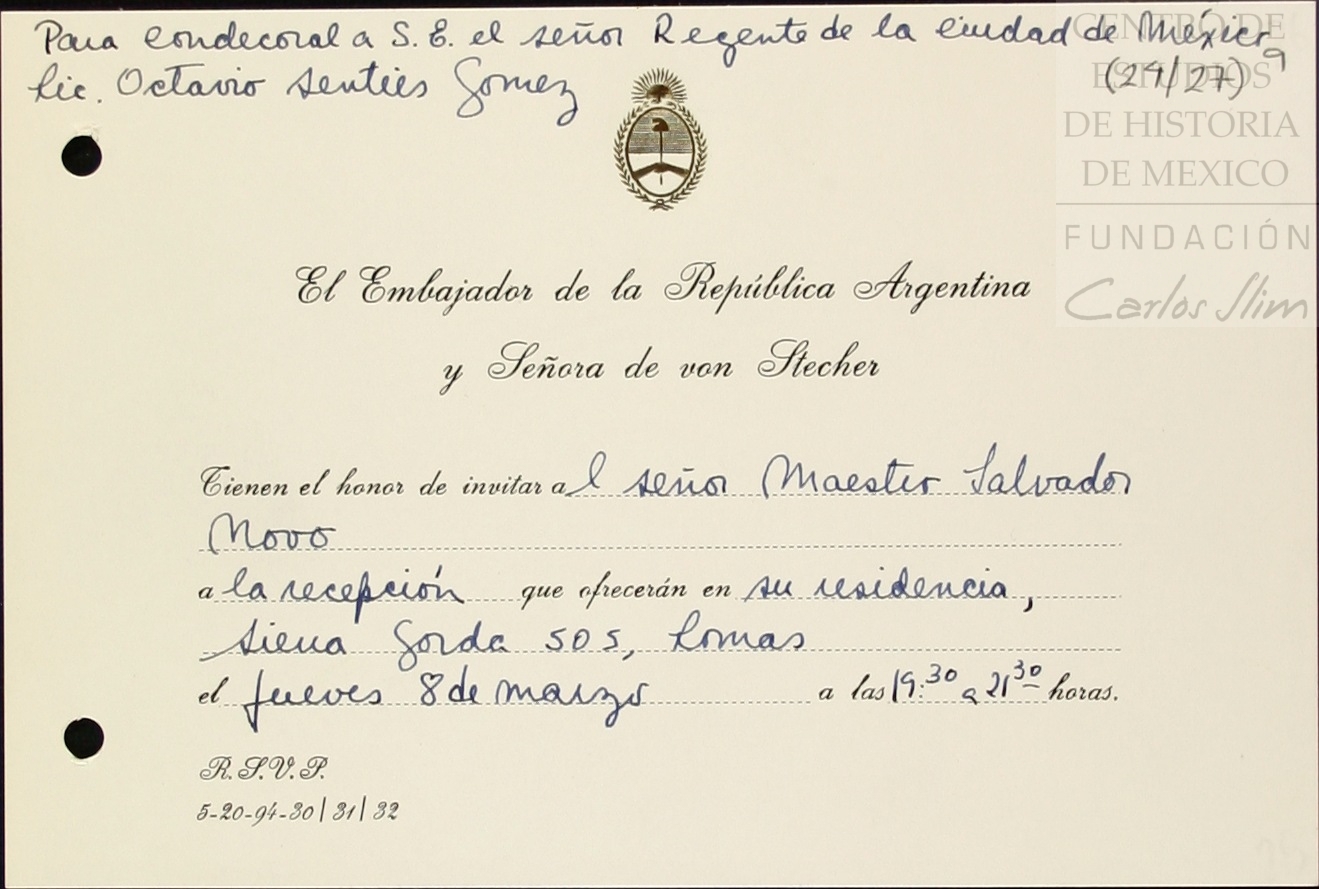 Para condecoral a S.E. el señor Regente de la Ciudad de México
Lic. Octavio Senties Gomez
(24/27)
9
CENTRO DE
ESTUDIOS
DE HISTORIA
DE MEXICO
FUNDACIÓN
Carlos Slim
El Embajador de la República Argentina
y Señora de von Stecher
Tienen el honor de invitar al señor Maestro Salvador
Novo
a la recepción que ofrecerán en su residencia,
Sierra Gorda 505, Lomas
el jueves 8 de marzo a las 19:30 a 21 30 horas.
R.S.V.P.
5-20-94-30/31/32